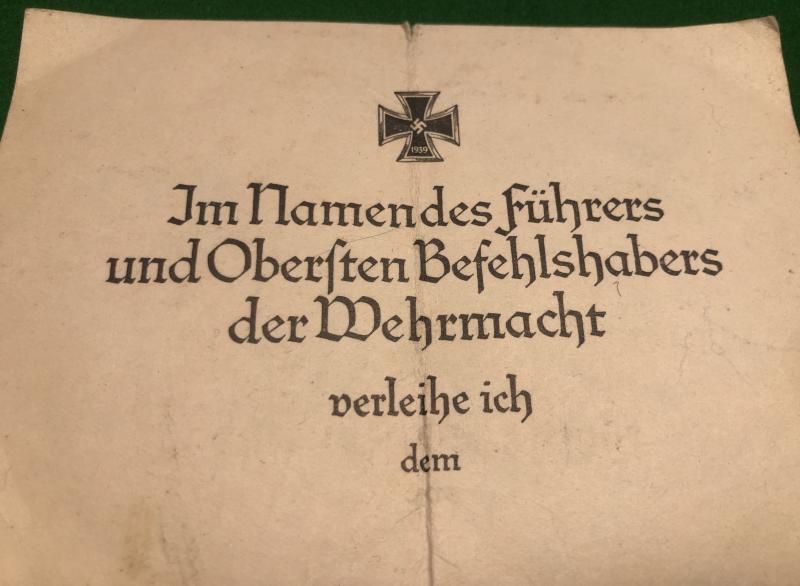 1939
Im Namen des Führers
und Oberſten Befehlshabers
der Wehrmacht
verleihe ich
dem